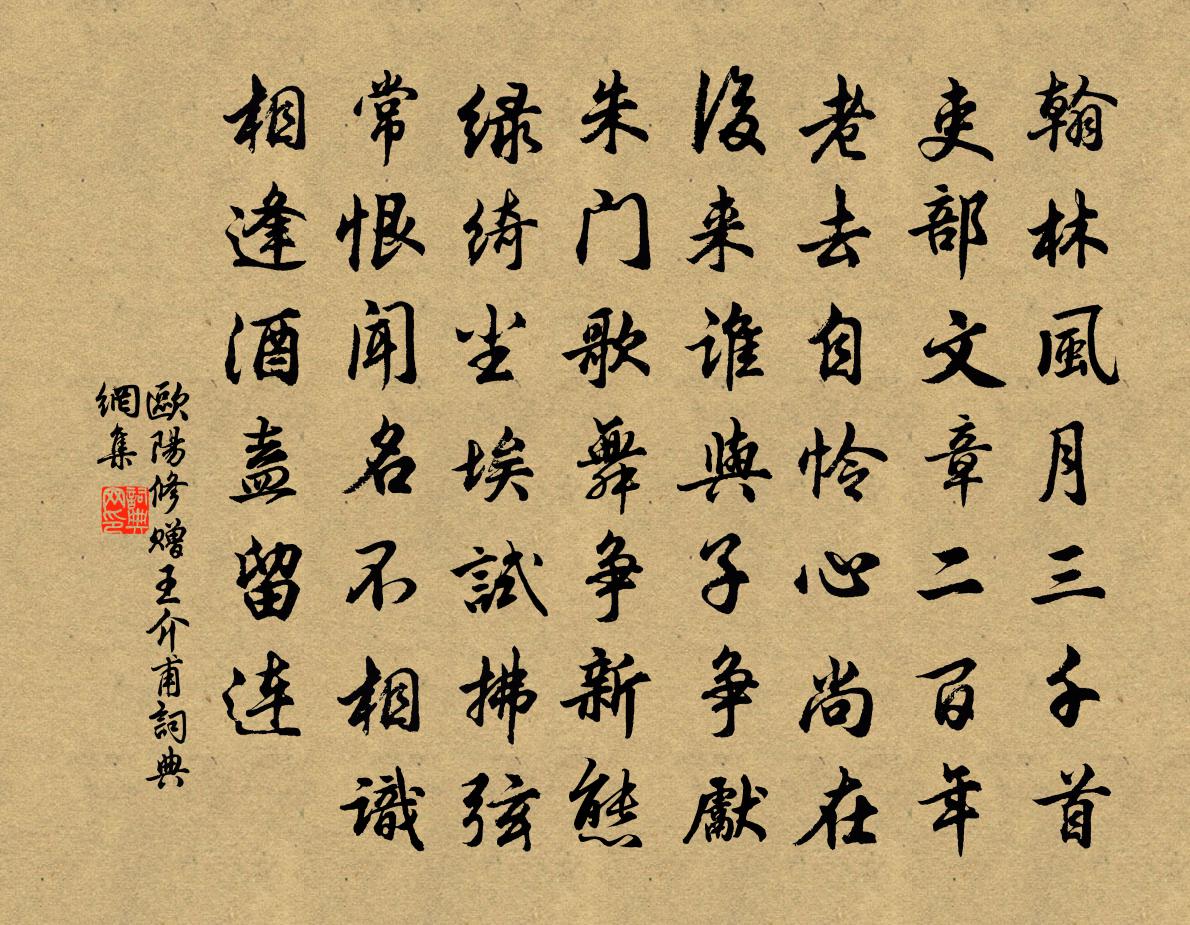 翰林風月三千首
吏部文章二百年
老去自怜心尚在
後来誰與子争獻
朱门歌舞争新態
绿绮尘埃試拂弦
常恨闻名不相識
相逢酒盏留连
歐陽修赠王介甫詞典
網集
詞典
网印